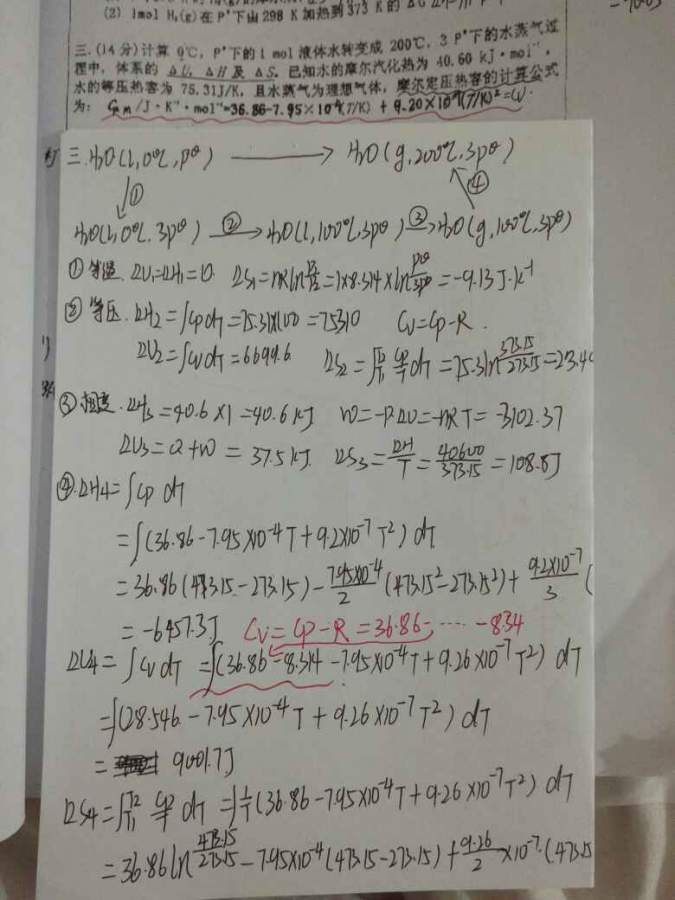 (2) 1mol H₂(g)在 P° 下由 298 K 加热到 373 K 的 ΔU
三.(14分)计算 0℃, P°下的 1 mol 液体水转变成 200℃, 3 P°下的水蒸气过
程中, 体系的 ΔU, ΔH 及 ΔS. 已知水的摩尔汽化热为 40.60 kJ·mol⁻¹,
水的等压热容为 75.31J/K, 且水蒸气为理想气体, 摩尔定压热容的计算公式
为: Cp,m/J·K⁻¹·mol⁻¹=36.86-7.95×10⁻⁴(T/K) + 9.20×10⁻⁷(T/K)²
三. H₂O(l, 0℃, pθ) ⟶ H₂O(g, 200℃, 3pθ)
↓① ↖④
H₂O(l, 0℃, 3pθ) ②⟶ H₂O(l, 100℃, 3pθ) ③⟶ H₂O(g, 100℃, 3pθ)
① 等温. ΔU₁=ΔH₁=0. ΔS₁=nRln P₁/P₂=1×8.314×ln pθ/3pθ=-9.13J·k⁻¹
② 等压. ΔH₂=∫CpdT=75.31×100=75310 Cv=Cp-R.
ΔU₂=∫CvdT=6699.6 ΔS₂=∫T₁T₂ Cp/T dT=75.3ln 373.15/273.15=23.4
③ 相变. ΔH₃=40.6×1=40.6kJ W=-PΔV=-nRT=-3102.37
ΔU₃=Q+W=37.5kJ. ΔS₃=ΔH/T=40600/373.15=108.8J
④. ΔH₄=∫Cp dT
=∫(36.86-7.95×10⁻⁴T+9.2×10⁻⁷T²) dT
=36.86(473.15-273.15)-7.95×10⁻⁴/2(473.15²-273.15²)+9.2×10⁻⁷/3(
=-6457.3J Cv=Cp-R=36.86-……-8.34
ΔU₄=∫CvdT=∫(36.86-8.314-7.95×10⁻⁴T+9.26×10⁻⁷T²) dT
=∫(28.546-7.95×10⁻⁴T+9.26×10⁻⁷T²) dT
= 9001.7J
ΔS₄=∫T₁T₂ Cp/T dT=∫1/T(36.86-7.95×10⁻⁴T+9.26×10⁻⁷T²) dT
=36.86ln 473.15/273.15-7.95×10⁻⁴(473.15-273.15)+9.26/2×10⁻⁷·(473.15